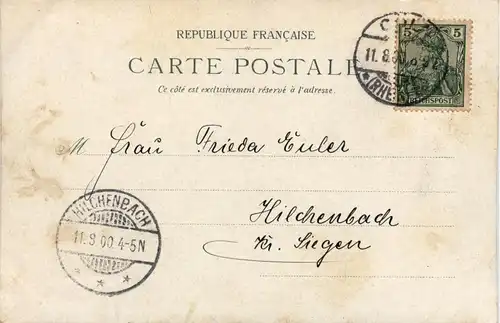 REPUBLIQUE FRANÇAISE
CARTE POSTALE
Ce côté est exclusivement réservé à l'adresse.
5 5
REICHSPOST
11.8.00
M. Frau Frieda Euler
Hilchenbach
Kr. Siegen
HILCHENBACH
11.8.00.4-5N